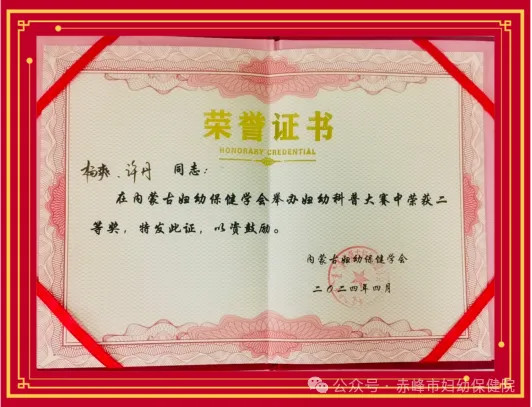 荣誉证书
HONORARY CREDENTIAL
杨爽、许丹 同志：
在内蒙古妇幼保健学会举办妇幼科普大赛中荣获二
等奖，特发此证，以资鼓励。
内蒙古妇幼保健学会
二〇二四年四月
公众号·赤峰市妇幼保健院